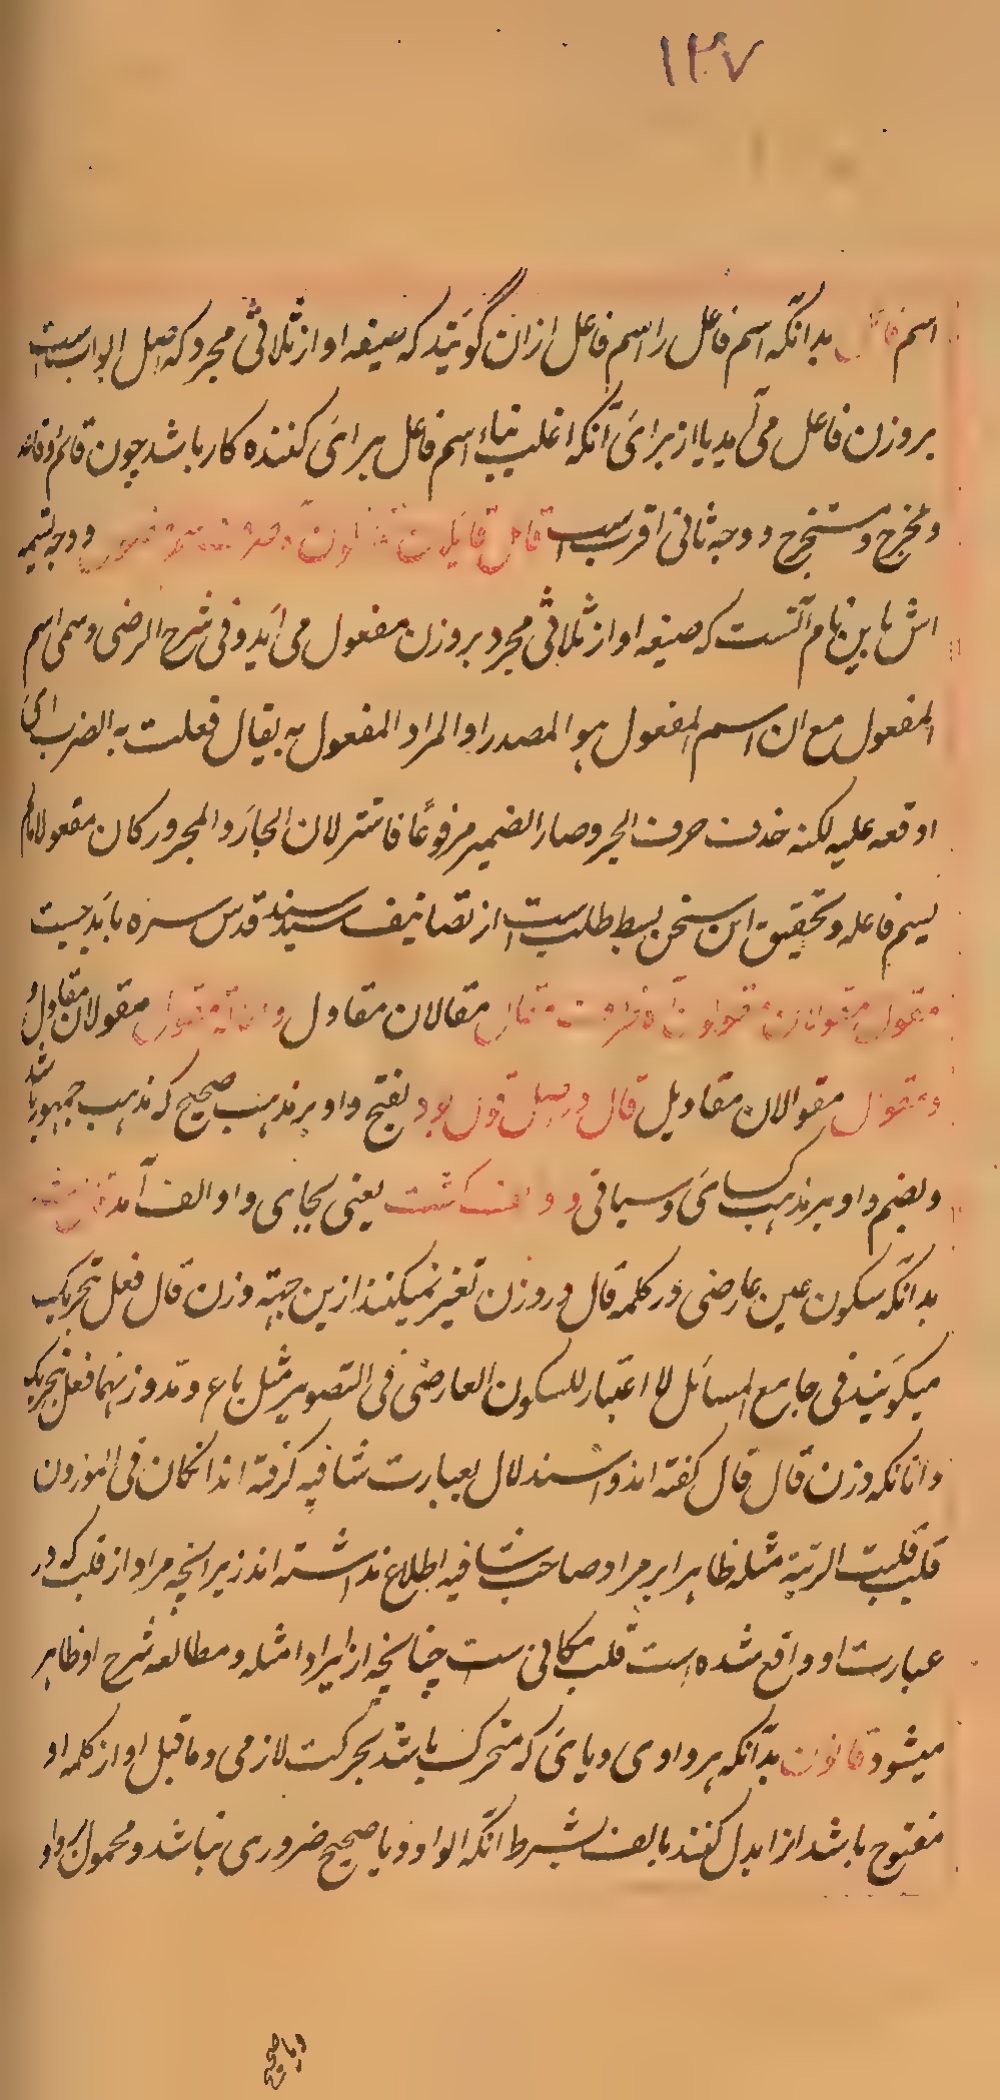 ١٢٧
اسم بدانکه اسم فاعل را اسم فاعل ازان گویند که صیغه او از ثلاثی مجرد که اصل ابواب است
بر وزن فاعل می آید یا از برای آنکه اغلب بناء اسم فاعل برای کننده کار باشد چون قائم و قاعد
و مخرج و مستخرج و وجه ثانی اقرب است و وجه تسمیه
اش باین نام آنست که صیغه او از ثلاثی مجرد بر وزن مفعول می آید و فی شرح الرضی و سمی اسم
المفعول مع ان اسم المفعول هو المصدر اذ المراد المفعول به یقال فعلت به الضرب ای
اوقعه علیه لکنه حذف حرف الجر و صار الضمیر مرفوعا فاستتر لان الجار و المجرور کان مفعول ما لم
یسم فاعله و تحقیق این سخن بسط طلب است از تصانیف سید سند قدس سره باید جست
مقول مقالان مقاول مقولان مقاول
و مقوال مقوالان مقاویل قال در اصل قول بود بفتح واو بر مذهب صحیح که مذهب جمهور باشد
و بضم واو بر مذهب کسائی و سیاقی و واو الف گشت یعنی بجای واو الف آمد
بدانکه سکون عین عارضی در کلمه قال در وزن تغیر نمیکنند ازین جهة وزن قال فعل بتحریک
میگویند فی جامع المسائل لا اعتبار للسکون العارضی فی التصویر مثل باع و مد وزنهما فعل بتحریک
و آنانکه وزن قال قال گفته اند و استدلال بعبارت شافیه گرفته اند ان کان فی الموزون
قلب قلبت الزنة مثله ظاهرا بر مراد صاحب شافیه اطلاع نداشته اند زیرانچه مراد از قلب که در
عبارت او واقع شده است قلب مکانی ست چنانچه از ایراد امثله و مطالعه شرح او ظاهر
میشود قانون بدانکه هر واوی و یایی که متحرک باشد بحرکت لازمی و ماقبل او از کلمه او
مفتوح باشد انرا بدل کنند بالف بشرط آنکه الواو و یا صحیح ضروری نباشد و محمول بر واو
و یا صحیح